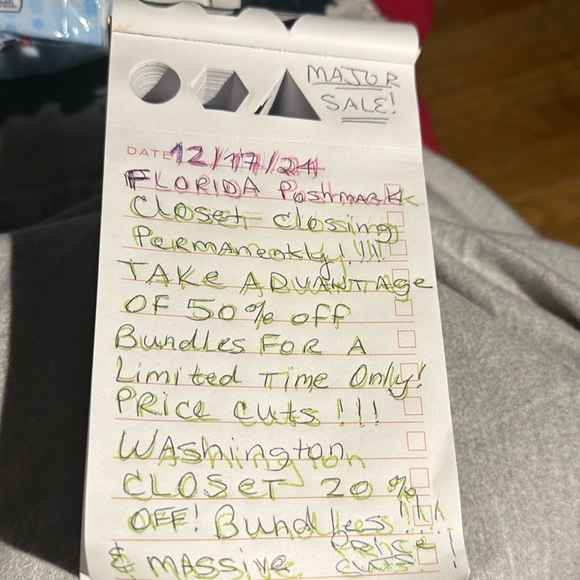 MAJOR
SALE!
DATE 12/17/24
FLORIDA Poshmark
Closet closing
Permanently!!!!
TAKE ADVANTAge
OF 50% off
Bundles FOR A
Limited Time Only!
PRice cuts!!!
WAshington
CLOSET 20%
OFF! Bundles!!!!
& MASSive PRice
cuts!